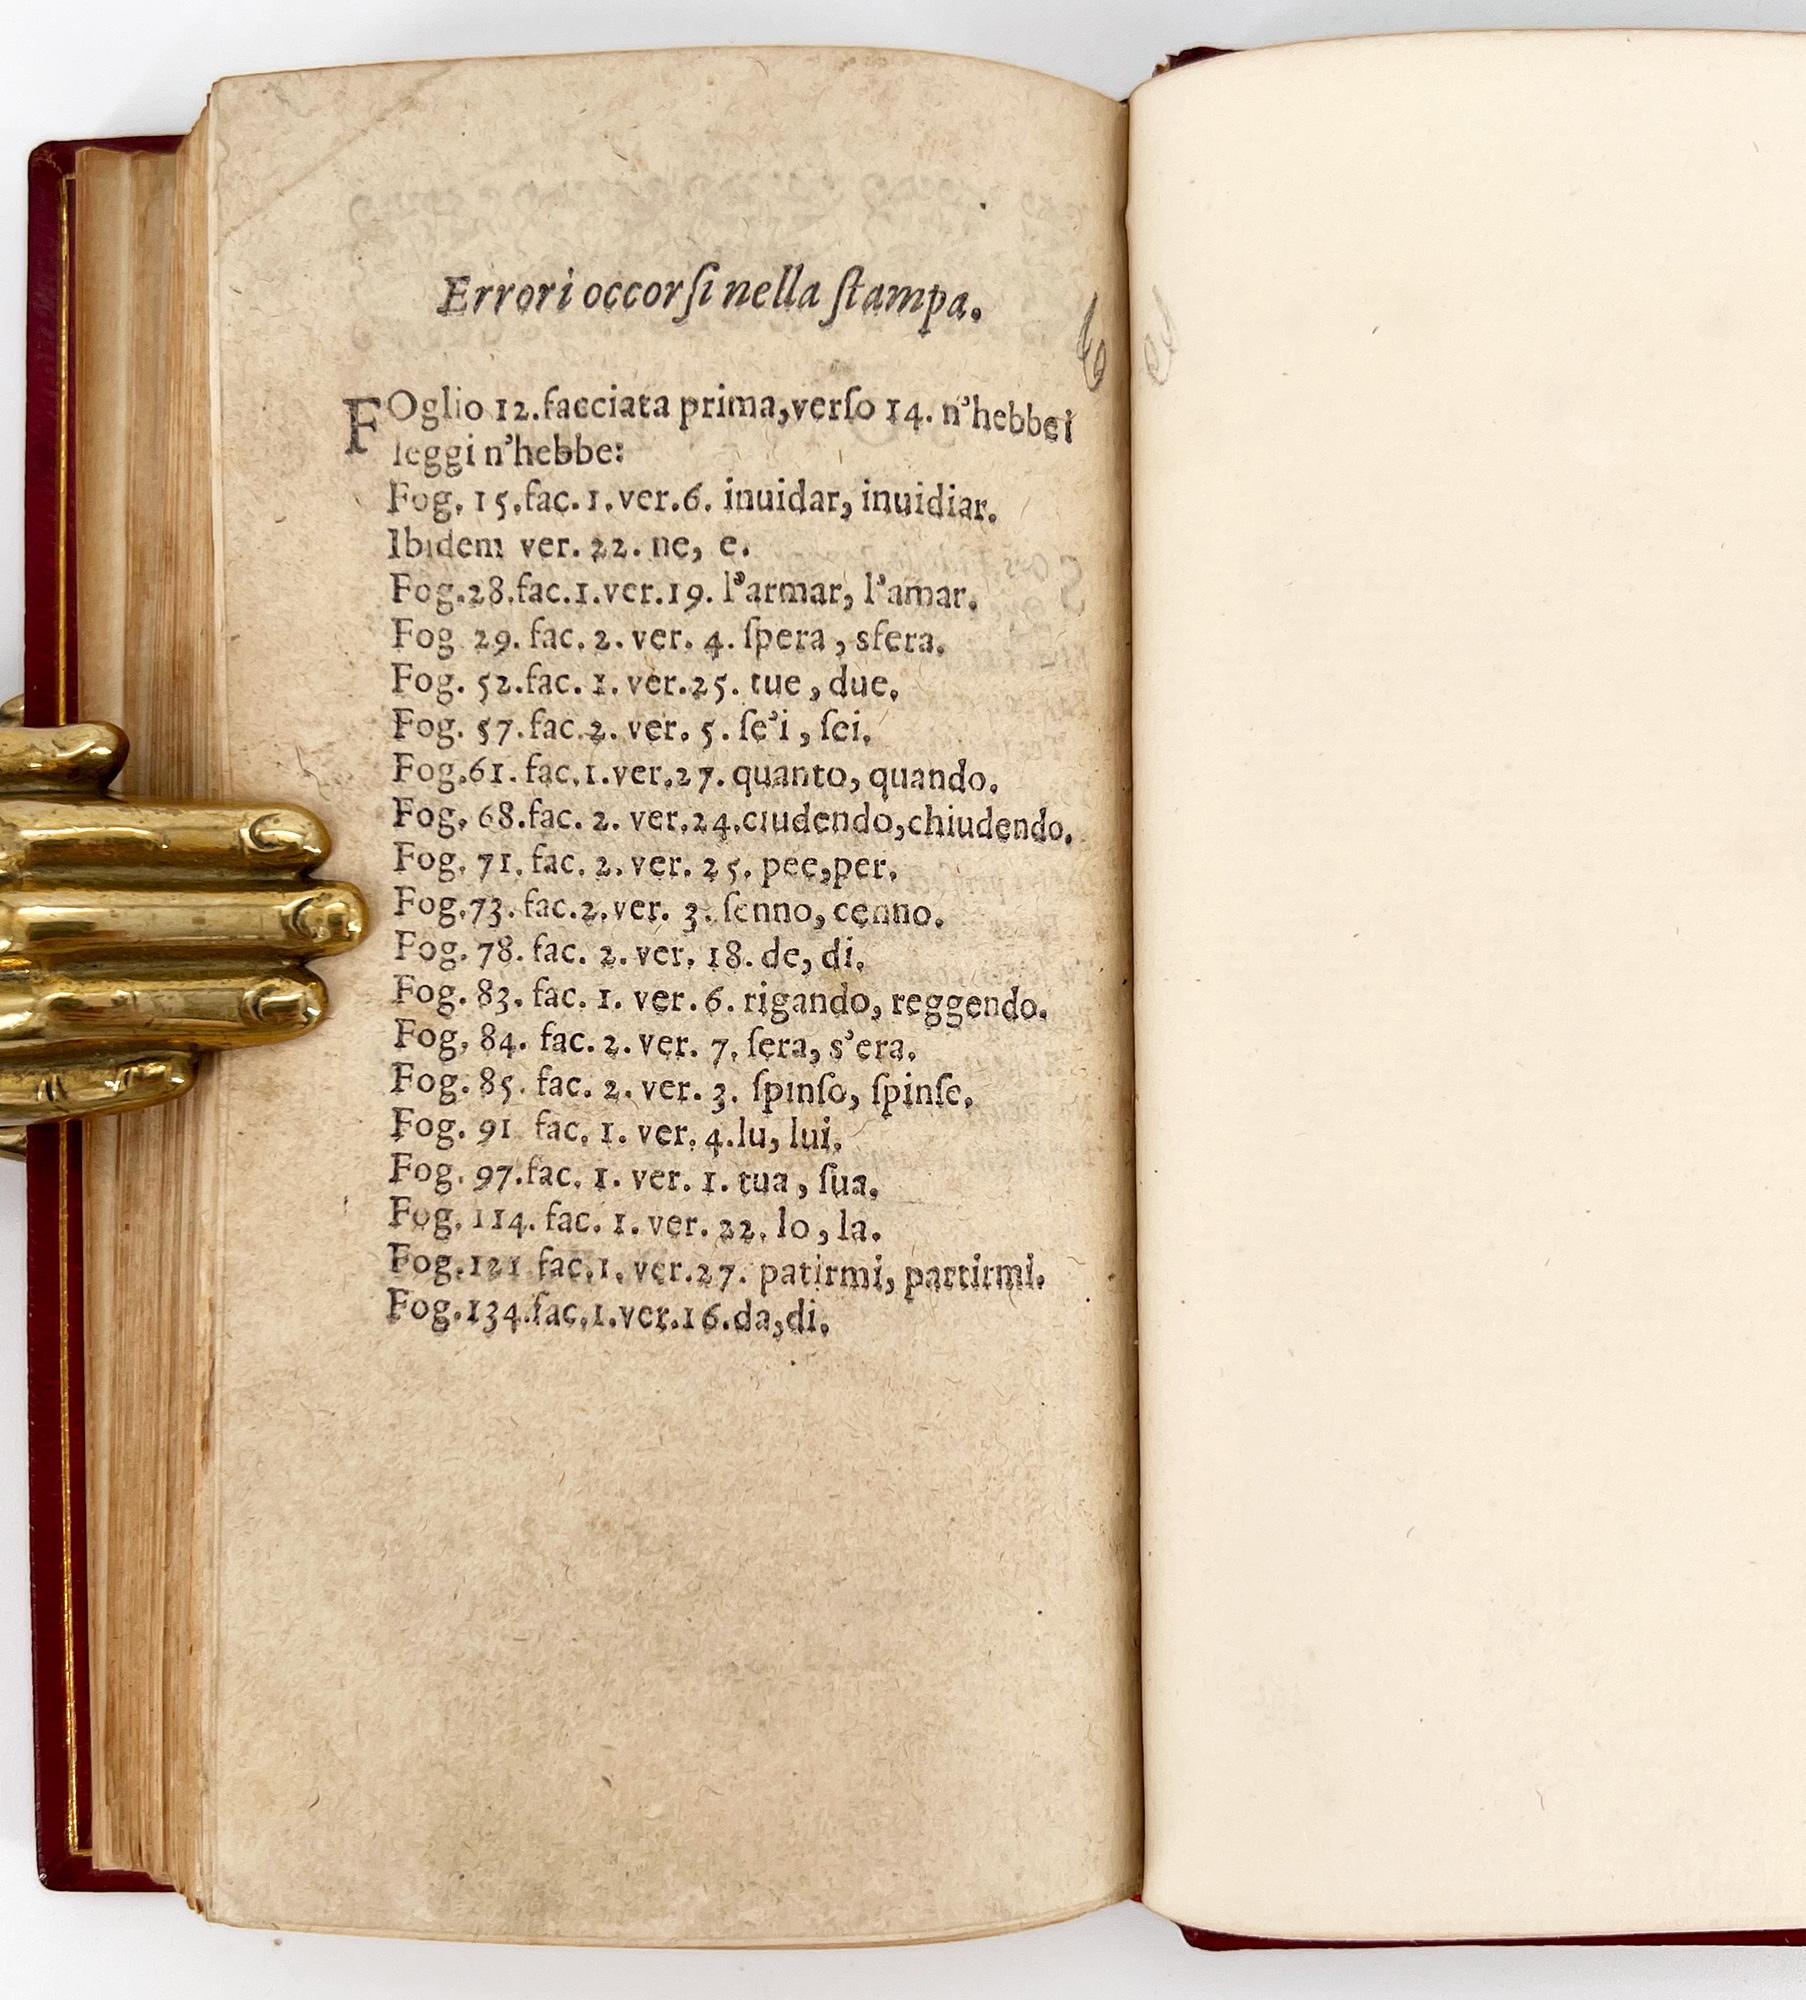 Errori occorſi nella ſtampa.
FOglio 12.facciata prima,verſo 14. n'hebbei
leggi n'hebbe:
Fog. 15.fac. 1.ver.6. inuidar, inuidiar.
Ibidem ver. 22. ne, e.
Fog.28.fac.1.ver.19. l'armar, l'amar.
Fog 29. fac. 2. ver. 4. ſpera , sfera.
Fog. 52.fac. 1. ver.25. tue , due.
Fog. 57.fac.2. ver. 5. ſe'i , ſei.
Fog.61. fac.1.ver.27. quanto, quando.
Fog. 68.fac. 2. ver.24.ciudendo,chiudendo.
Fog. 71. fac. 2. ver. 25. pee,per.
Fog.73. fac.2.ver. 3. ſenno, cenno.
Fog. 78. fac. 2. ver. 18. de, di.
Fog. 83. fac. 1. ver. 6. rigando, reggendo.
Fog. 84. fac. 2. ver. 7. ſera, s'era.
Fog. 85. fac. 2. ver. 3. ſpinſo, ſpinſe.
Fog. 91 fac. 1. ver. 4.lu, lui.
Fog. 97.fac. 1. ver. 1. tua , ſua.
Fog. 114. fac. 1. ver. 22. lo , la.
Fog.121 fac.1. ver.27. patirmi, partirmi.
Fog.134.fac.1.ver.16.da,di.